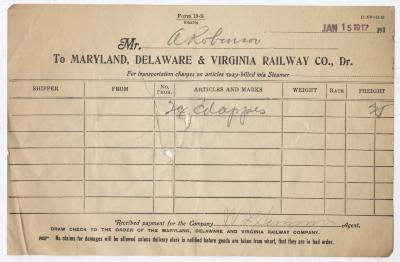 Form 19-S.
JAN 15 1917 191
Mr. A Robinson
To MARYLAND, DELAWARE & VIRGINIA RAILWAY CO., Dr.
For transportation charges on articles way-billed via Steamer
SHIPPER FROM No. PKGS. ARTICLES AND MARKS WEIGHT RATE FREIGHT
25
Received payment for the Company Agent.
DRAW CHECK TO THE ORDER OF THE MARYLAND, DELAWARE AND VIRGINIA RAILWAY COMPANY.
No claims for damages will be allowed unless delivery clerk is notified before goods are taken from wharf, that they are in bad order.